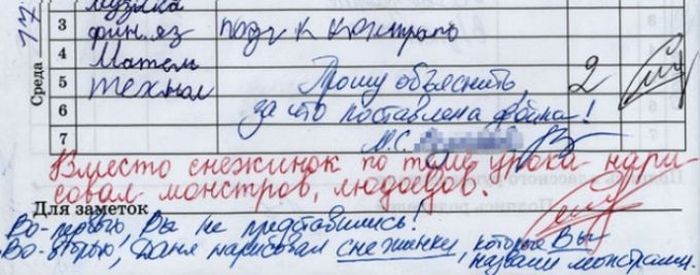 17
Среда
музыка
3 фин.яз подг к контрол
4 Матем
5 технол Прошу объяснить, 2
6 за что поставлена двойка!
7 М.С.
Вместо снежинок по теме урока нари
совал монстров, людоедов.
Для заметок
Во-первых, Вы не представились!
Во-вторых, Даня нарисовал снежинки, которые Вы
назвали монстрами.